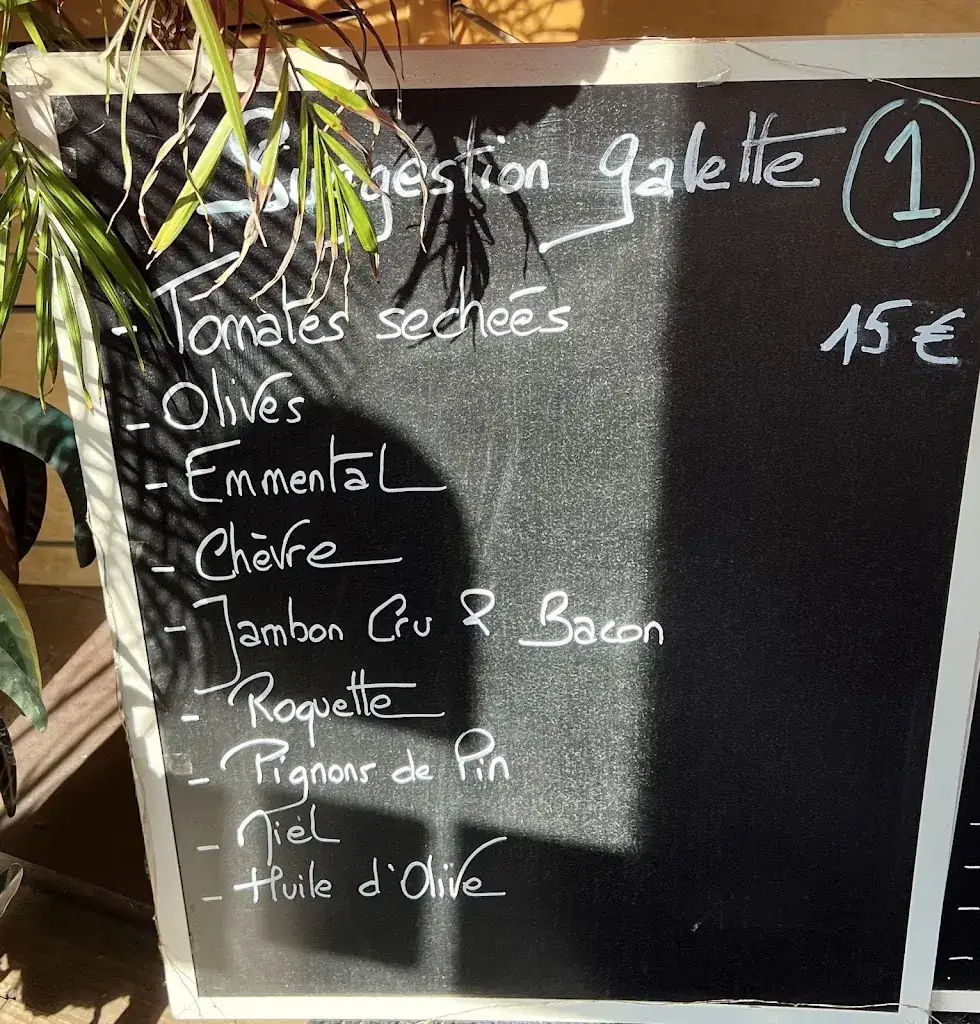 Suggestion galette 1
- Tomates secheés 15 €
- Olives
- Emmental
- Chèvre
- Jambon Cru & Bacon
- Roquette
- Pignons de Pin
- Miel
- Huile d'Olive